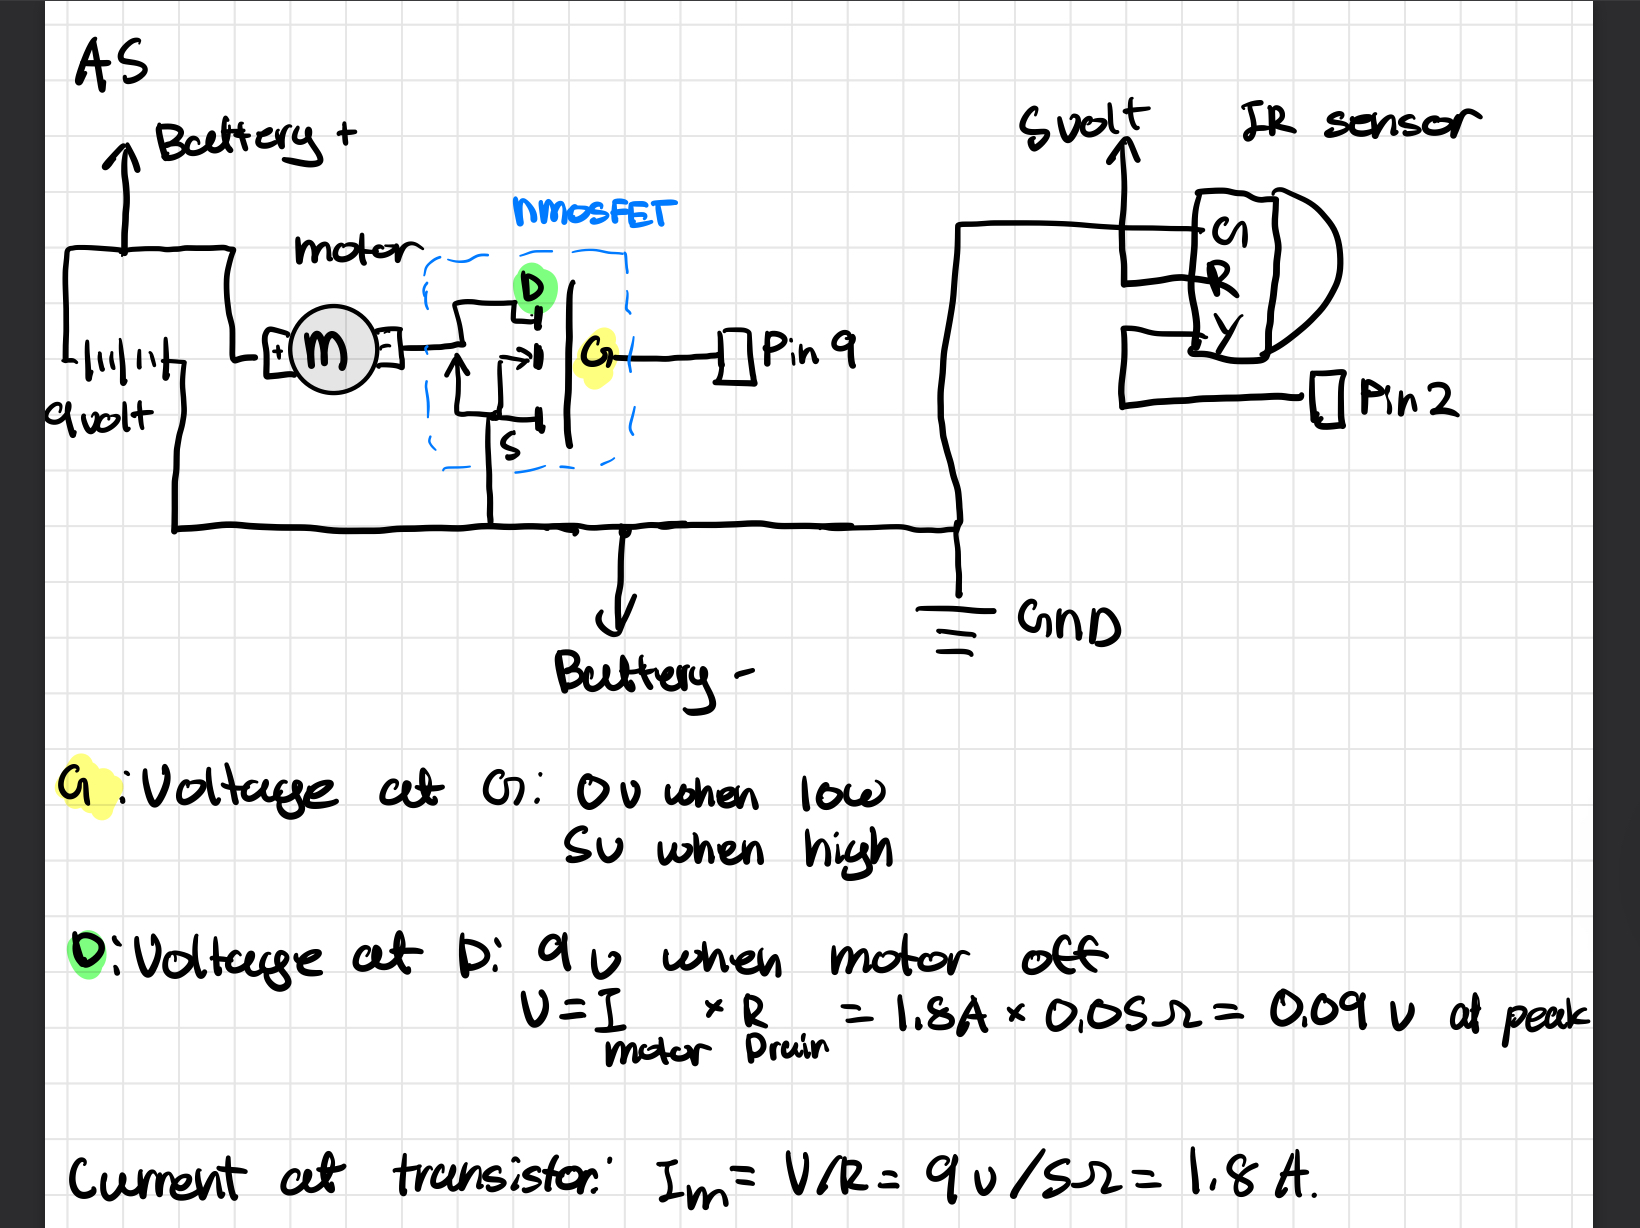 A5
Battery +
5volt
IR sensor
nmosFET
motor
D
G
R
Y
+
m
-
G
Pin 9
9volt
S
Pin 2
GND
Battery -
G: Voltage at G: 0v when low
5v when high
D: Voltage at D: 9v when motor off
V = I motor × R Drain = 1.8A × 0.05Ω = 0.09 v at peak
Current at transistor: Im = V/R = 9v/5Ω = 1.8 A.